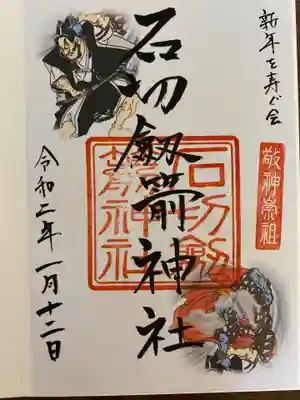 新年を寿ぐ会
敬神崇祖
石切劔箭神社
石切劔
箭神社
令和二年一月十二日